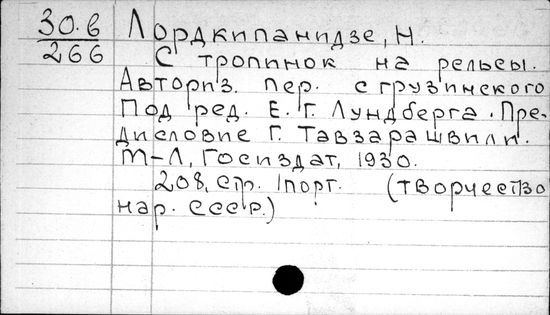 30.в
266
Лордкипанидзе, Н.
С тропинок на рельсы.
Авториз. пер. с грузинского
Под ред. Е. Г. Лундберга. Пре-
дисловие Г. Тавзарашвили.
М-Л, Госиздат, 1930.
208, стр. 1 порт. (творчество
нар. СССР.)